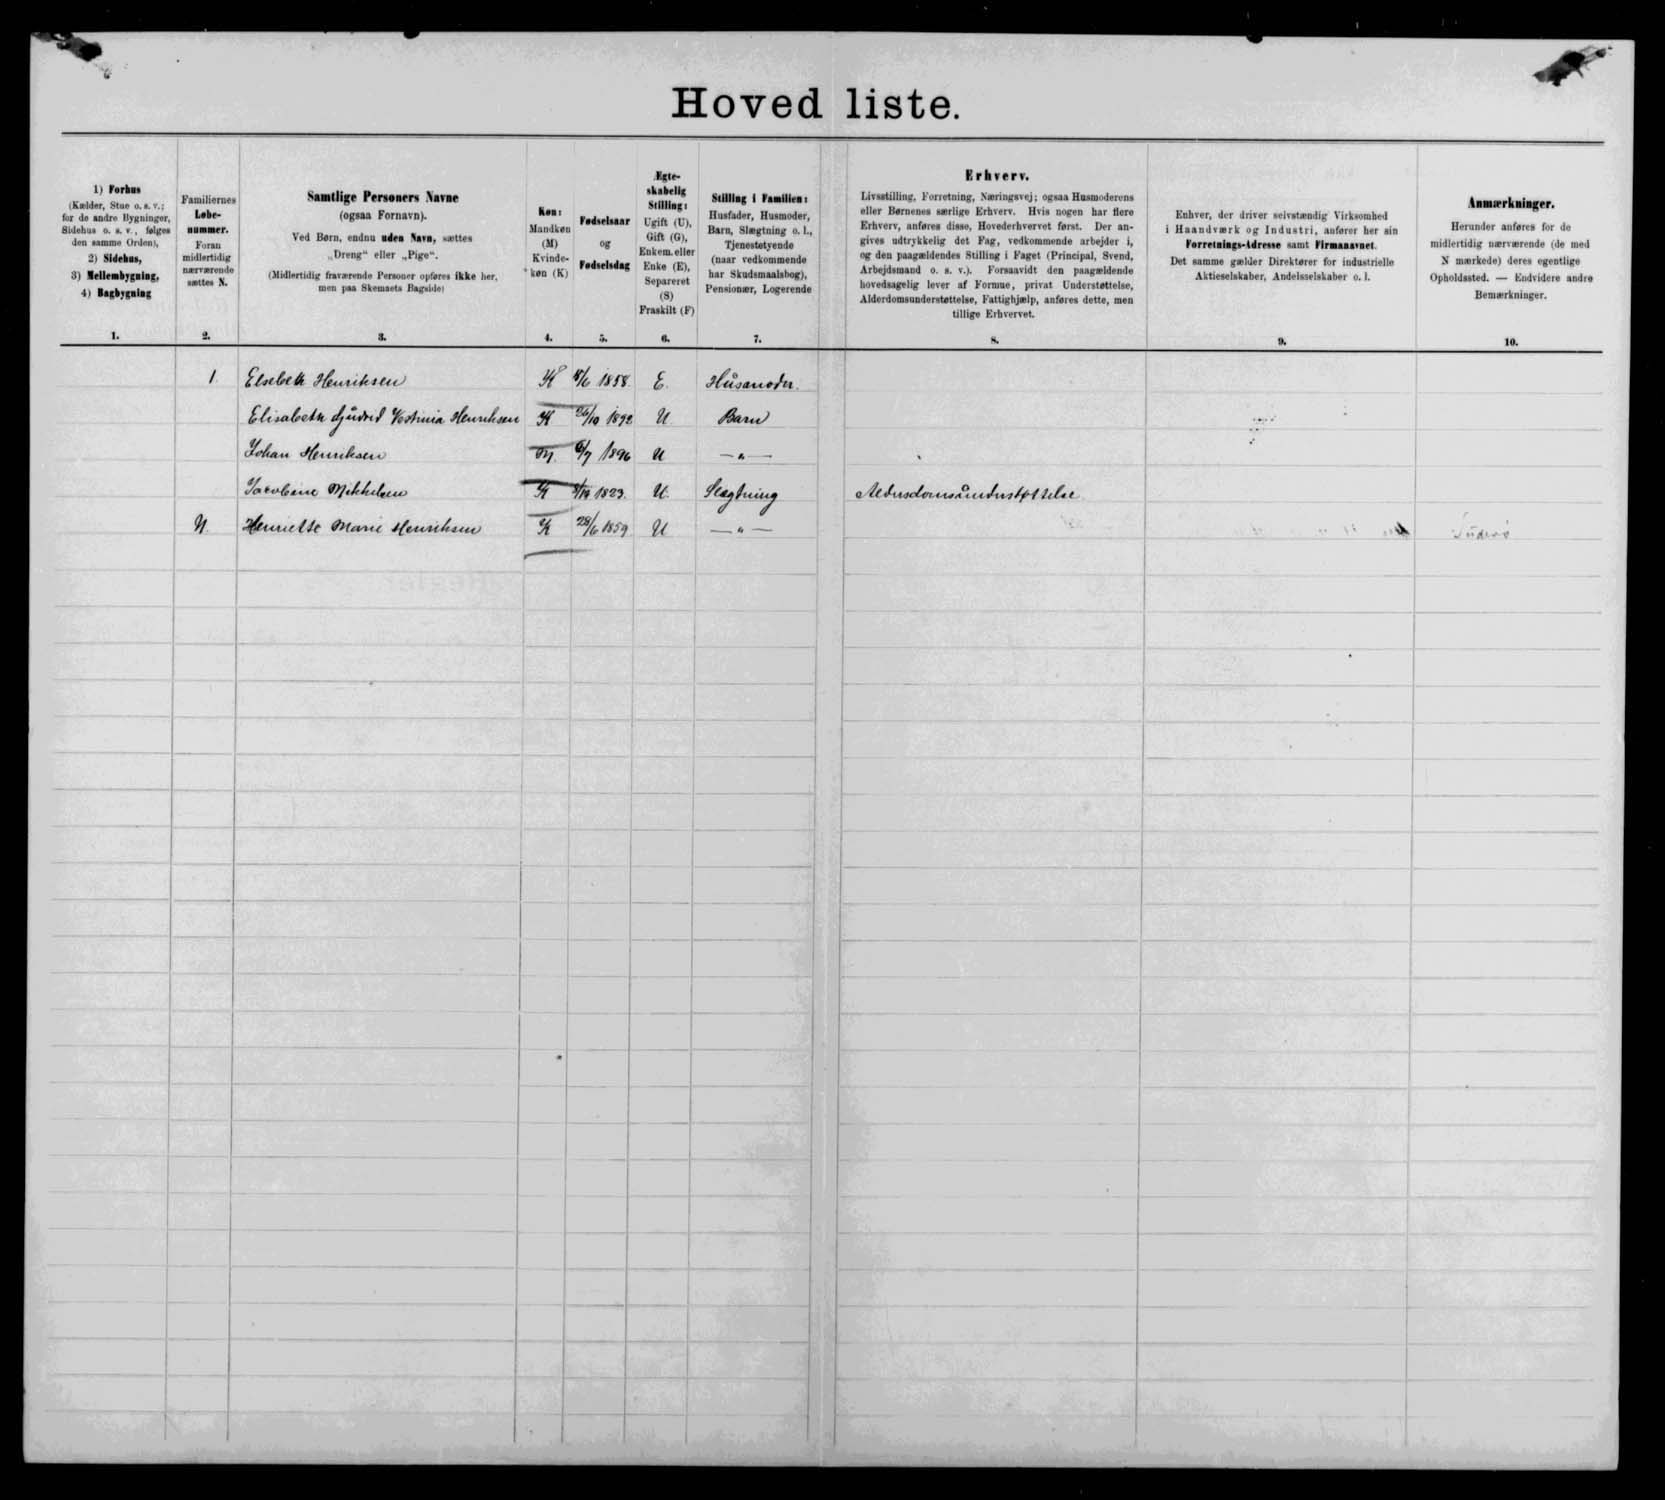 Hovedliste.
1) Forhus
(Kælder, Stue o. s. v.;
for de andre Bygninger,
Sidehus o. s. v., følges
den samme Orden),
2) Sidehus,
3) Mellembygning,
4) Bagbygning
1.
Familiernes
Løbe-
nummer.
Foran
midlertidig
nærværende
sættes N.
2.
Samtlige Personers Navne
(ogsaa Fornavn).
Ved Børn, endnu uden Navn, sættes
„Dreng“ eller „Pige“.
(Midlertidig fraværende Personer opføres ikke her,
men paa Skemaets Bagside)
3.
Køn:
Mandkøn
(M)
Kvinde-
køn (K)
4.
Fødselsaar
og
Fødselsdag
5.
Ægte-
skabelig
Stilling:
Ugift (U),
Gift (G),
Enkem. eller
Enke (E),
Separeret
(S)
Fraskilt (F)
6.
Stilling i Familien:
Husfader, Husmoder,
Barn, Slægtning o. l.,
Tjenestetyende
(naar vedkommende
har Skudsmaalsbog),
Pensionær, Logerende
7.
Erhverv.
Livsstilling, Forretning, Næringsvej; ogsaa Husmoderens
eller Børnenes særlige Erhverv. Hvis nogen har flere
Erhverv, anføres disse, Hovederhvervet først. Der an-
gives udtrykkelig det Fag, vedkommende arbejder i,
og den paagældendes Stilling i Faget (Principal, Svend,
Arbejdsmand o. s. v.). Forsaavidt den paagældende
hovedsagelig lever af Formue, privat Understøttelse,
Alderdomsunderstøttelse, Fattighjælp, anføres dette, men
tillige Erhvervet.
8.
Enhver, der driver selvstændig Virksomhed
i Haandværk og Industri, anfører her sin
Forretnings-Adresse samt Firmanavnet.
Det samme gælder Direktører for industrielle
Aktieselskaber, Andelsselskaber o. l.
9.
Anmærkninger.
Herunder anføres for de
midlertidig nærværende (de med
N mærkede) deres egentlige
Opholdssted. — Endvidere andre
Bemærkninger.
10.
1 Elsebeth Henriksen K 8/6 1858. E. Húsmoder.
Elisabeth Gjúdrid Vestinia Henriksen K 26/10 1892 U Barn
Johan Henriksen M. 6/7 1896 U —„—
Jacobine Mikkelsen K 1823. U. Slægtning Alderdomsúnderstøttelse
N. Henriette Marie Henriksen K 28/6 1859 U —„— Súderø